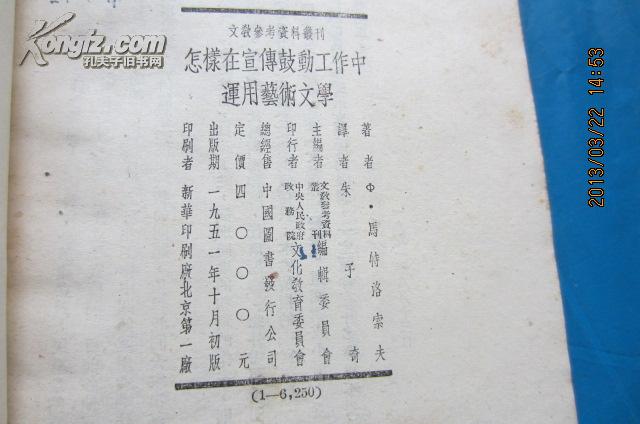 文教參考資料叢刊
怎樣在宣傳鼓動工作中
運用藝術文學
著者 Ф·馬特洛索夫
譯者 朱子奇
主編者 文教參考資料叢刊編輯委員會
印行者 中央人民政府政務院文化教育委員會
總經售 中國圖書發行公司
定價 四〇〇〇元
出版期 一九五一年十月初版
印刷者 新華印刷廠北京第一廠
(1—6,250)
孔夫子旧书网
2013/03/22 14:53